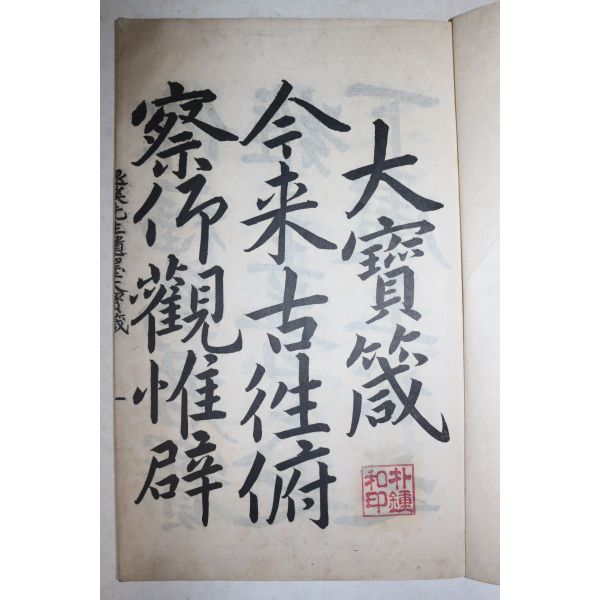 大寶箴
今来古徃俯
察仰觀惟辟
朴鍾
和印
一